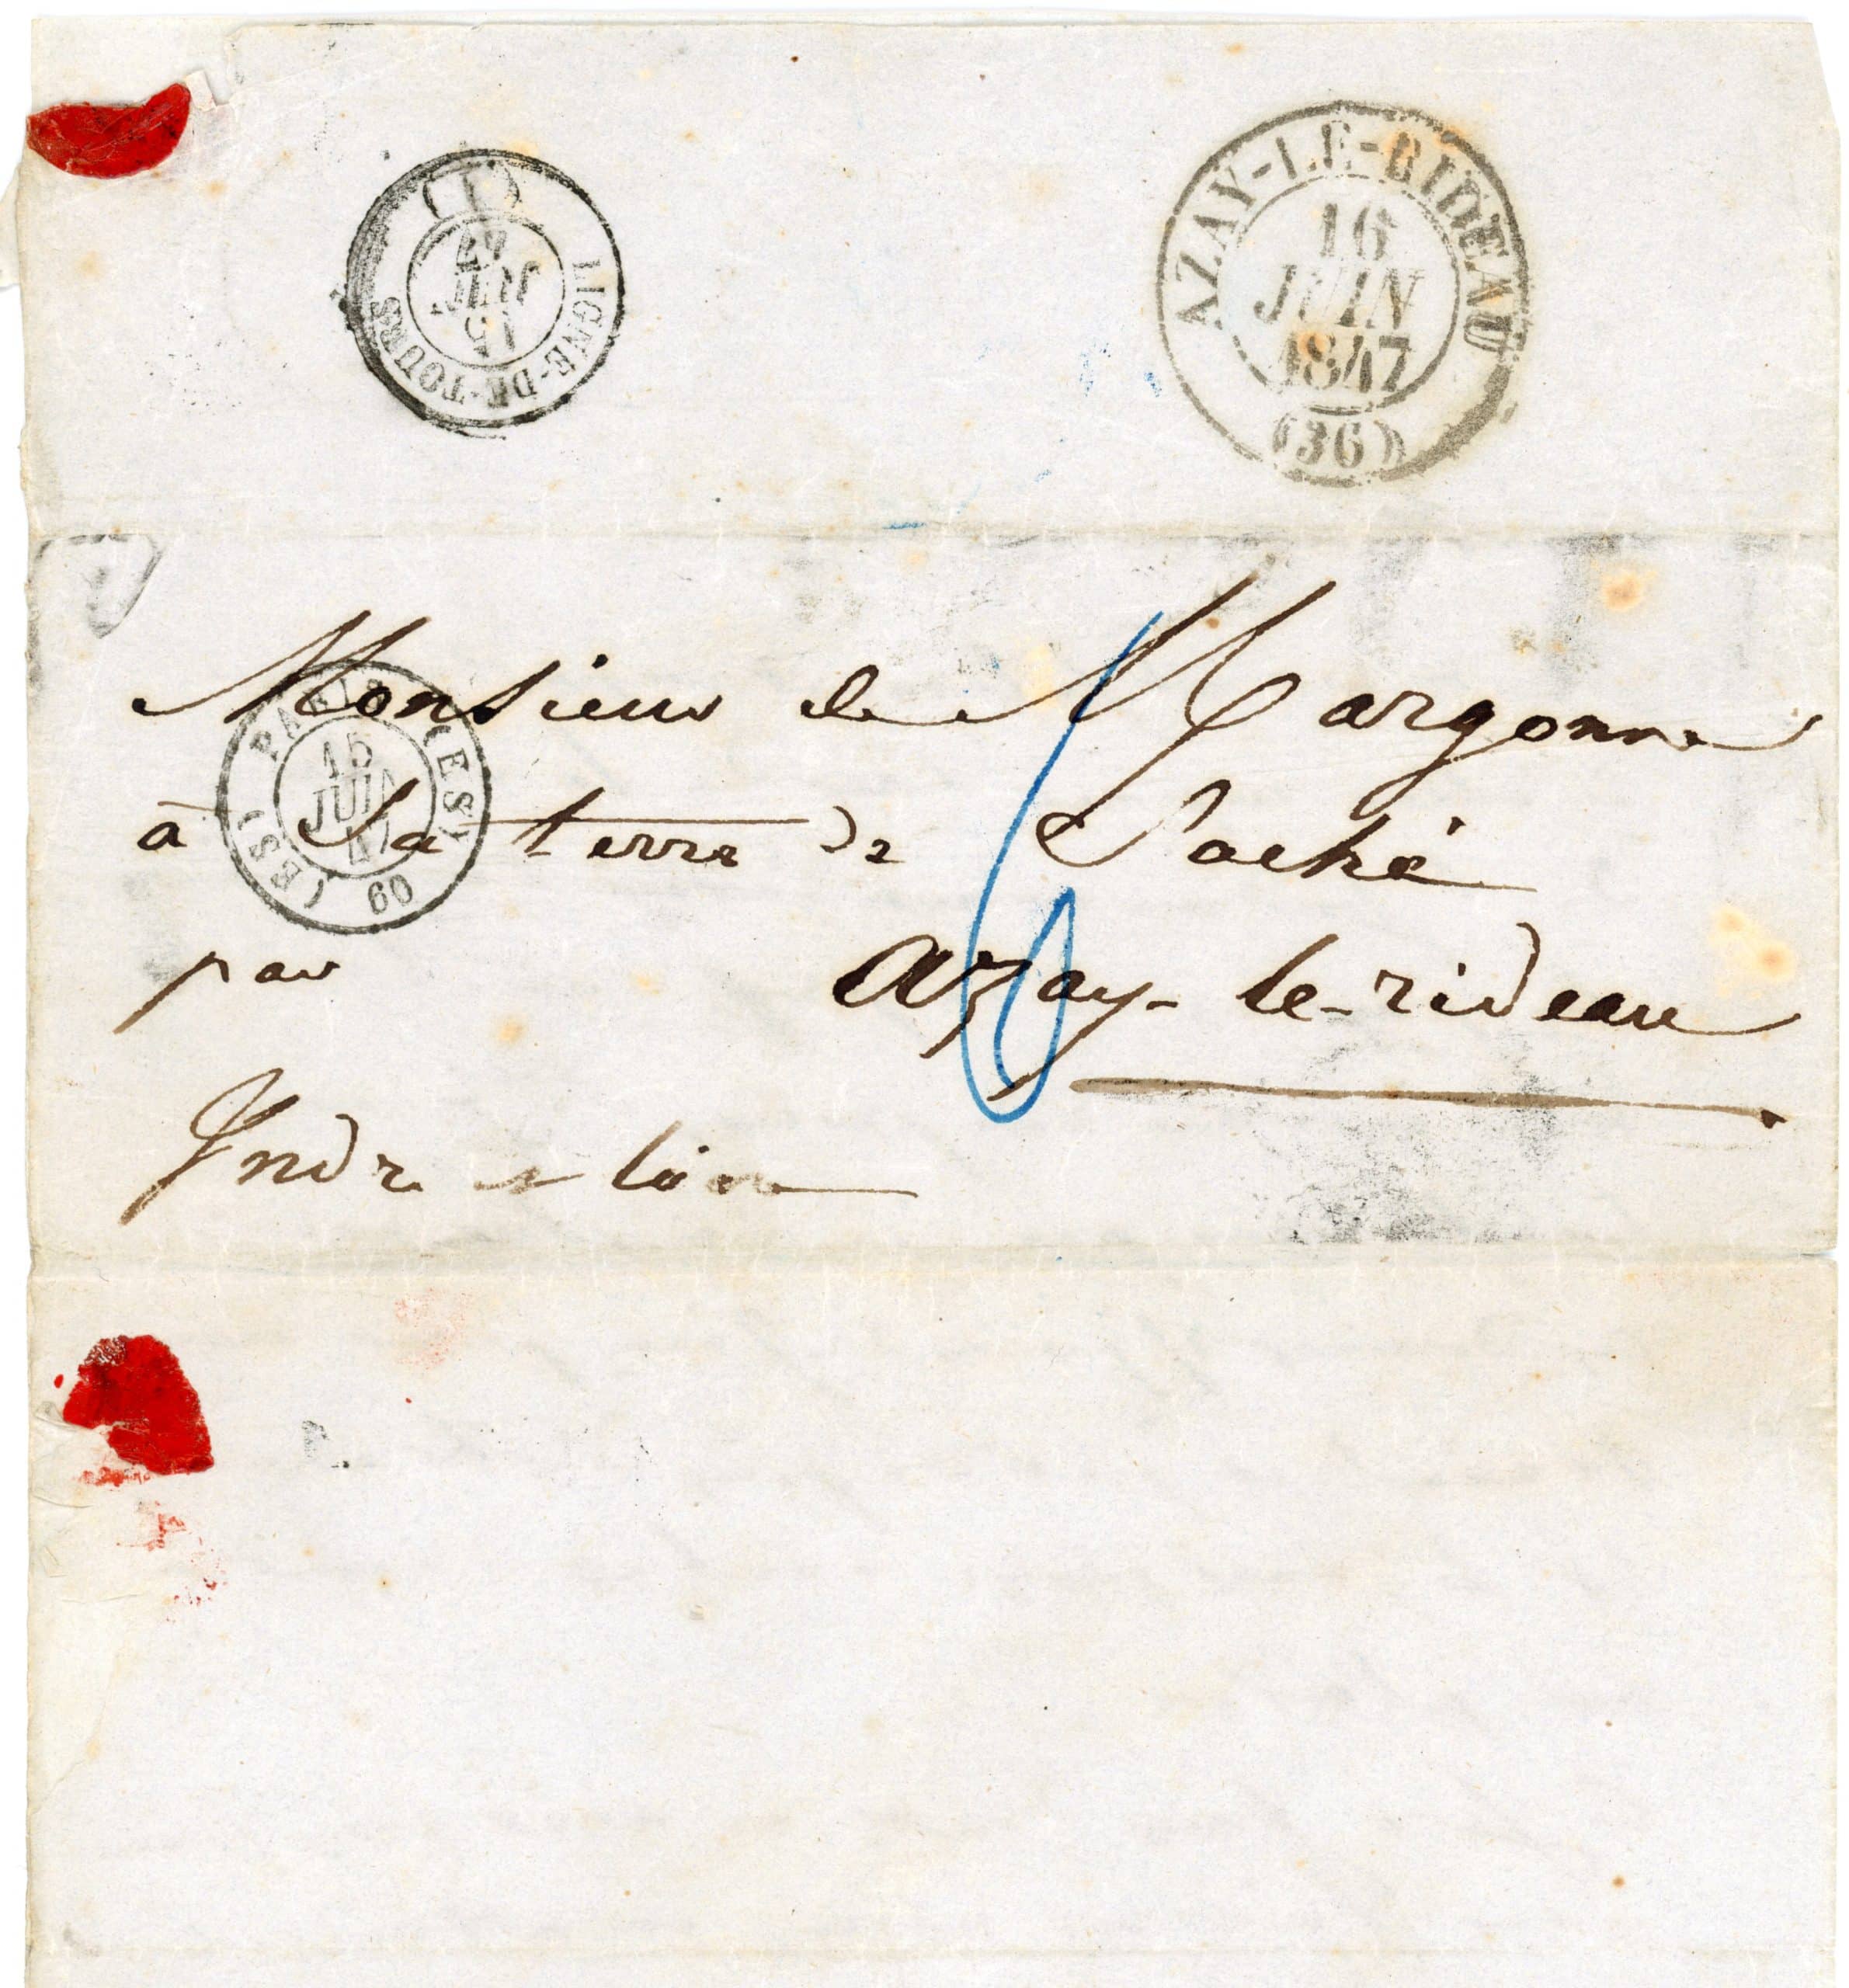 (1)
LIGNE-DE-TOURS
15
JUIN
47
AZAY-LE-RIDEAU
16
JUIN
1847
(36)
Monsieur de Margonne
à Sa terre de Saché
par Azay-le-rideau
Yndre et Loire
PARIS (ES)
15
JUIN
47
60
(ES)
6